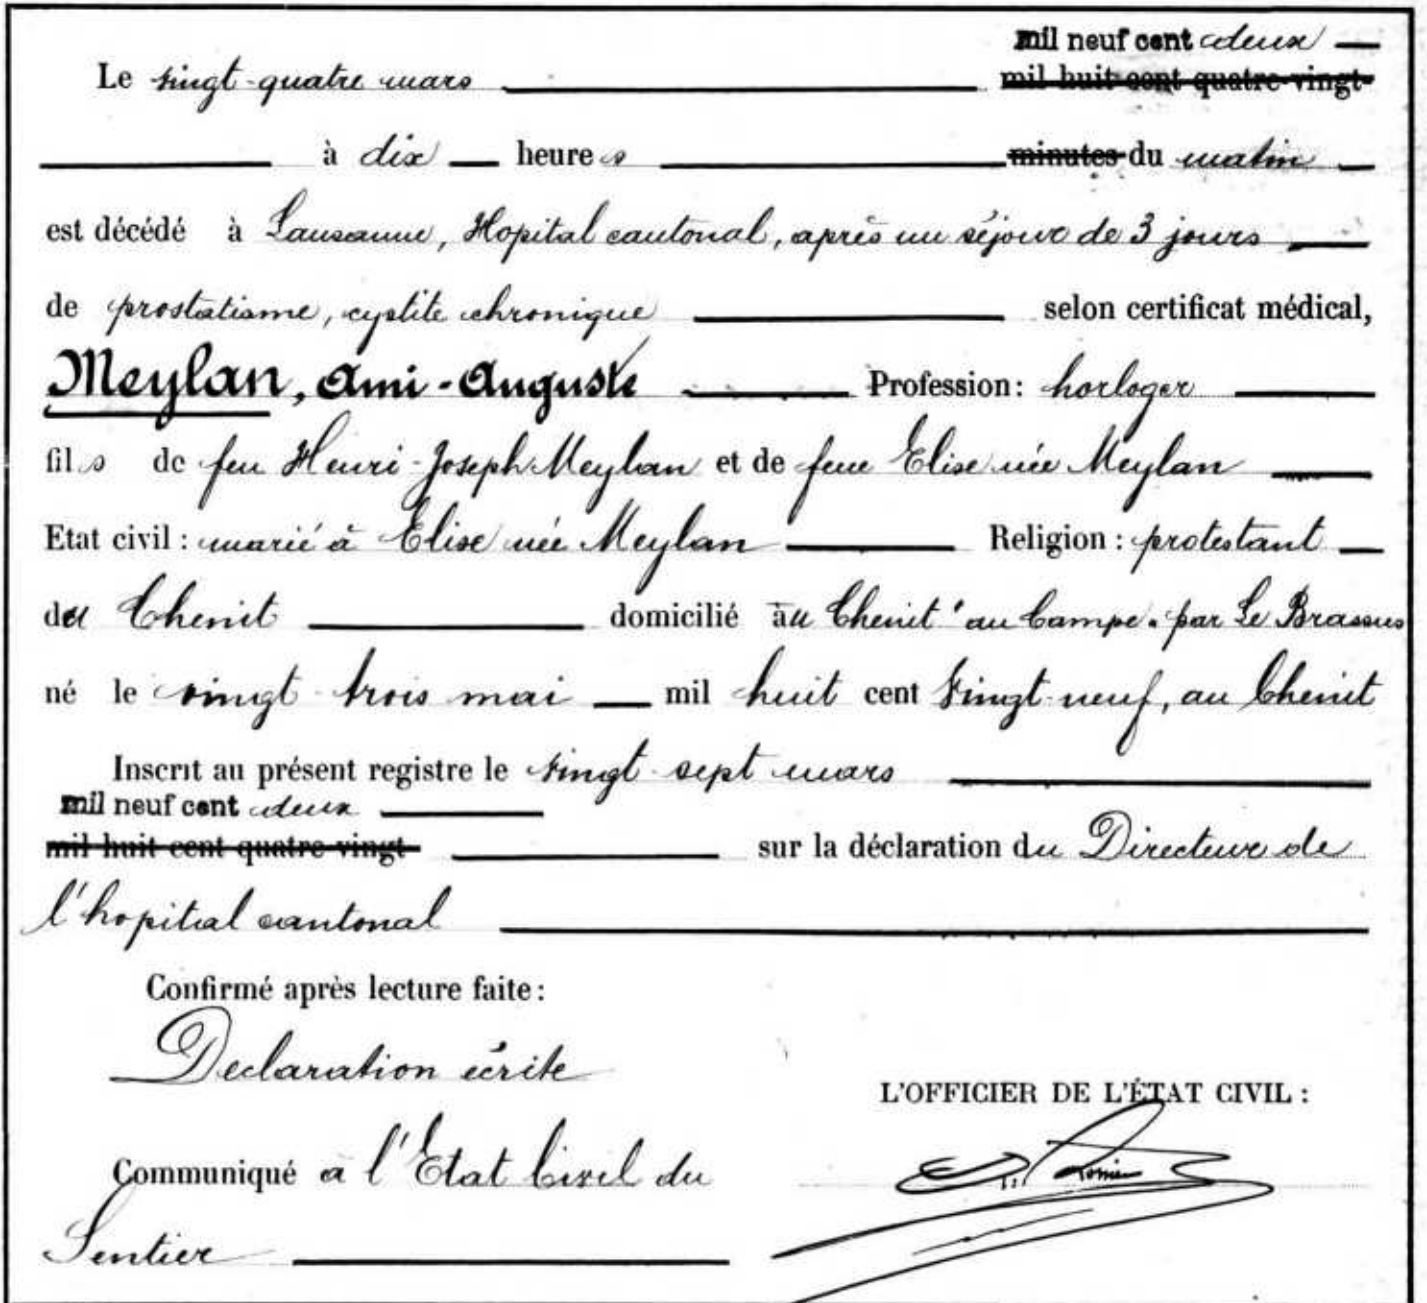 mil neuf cent deux
Le vingt-quatre mars mil huit cent quatre-vingt-
à dix heures minutes du matin
est décédé à Lausanne, Hopital cantonal, après un séjour de 3 jours
de prostatisme, cystite chronique selon certificat médical,
Meylan, Ami-Auguste Profession: horloger
fils de feu Henri-Joseph Meylan et de feue Elise née Meylan
Etat civil: marié à Elise née Meylan Religion: protestant
du Chenit domicilié au Chenit "au Campe" par Le Brassus
né le vingt-trois mai mil huit cent vingt-neuf, au Chenit
Inscrit au présent registre le vingt-sept mars
mil neuf cent deux
mil huit cent quatre-vingt- sur la déclaration du Directeur de
l'hopital cantonal
Confirmé après lecture faite:
Declaration écrite
L'OFFICIER DE L'ÉTAT CIVIL:
Communiqué à l'Etat Civil du
Sentier